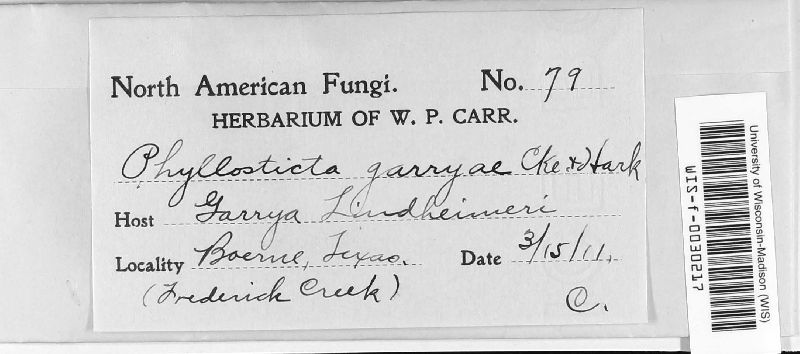 North American Fungi. No. 79
HERBARIUM OF W. P. CARR.
Phyllosticta garryae Cke & Hark
Host Garrya Lindheimeri
Locality Boerne, Texas. Date 3/15/11.
(Frederick Creek) C.
University of Wisconsin-Madison (WIS)
WIS-f-0030217